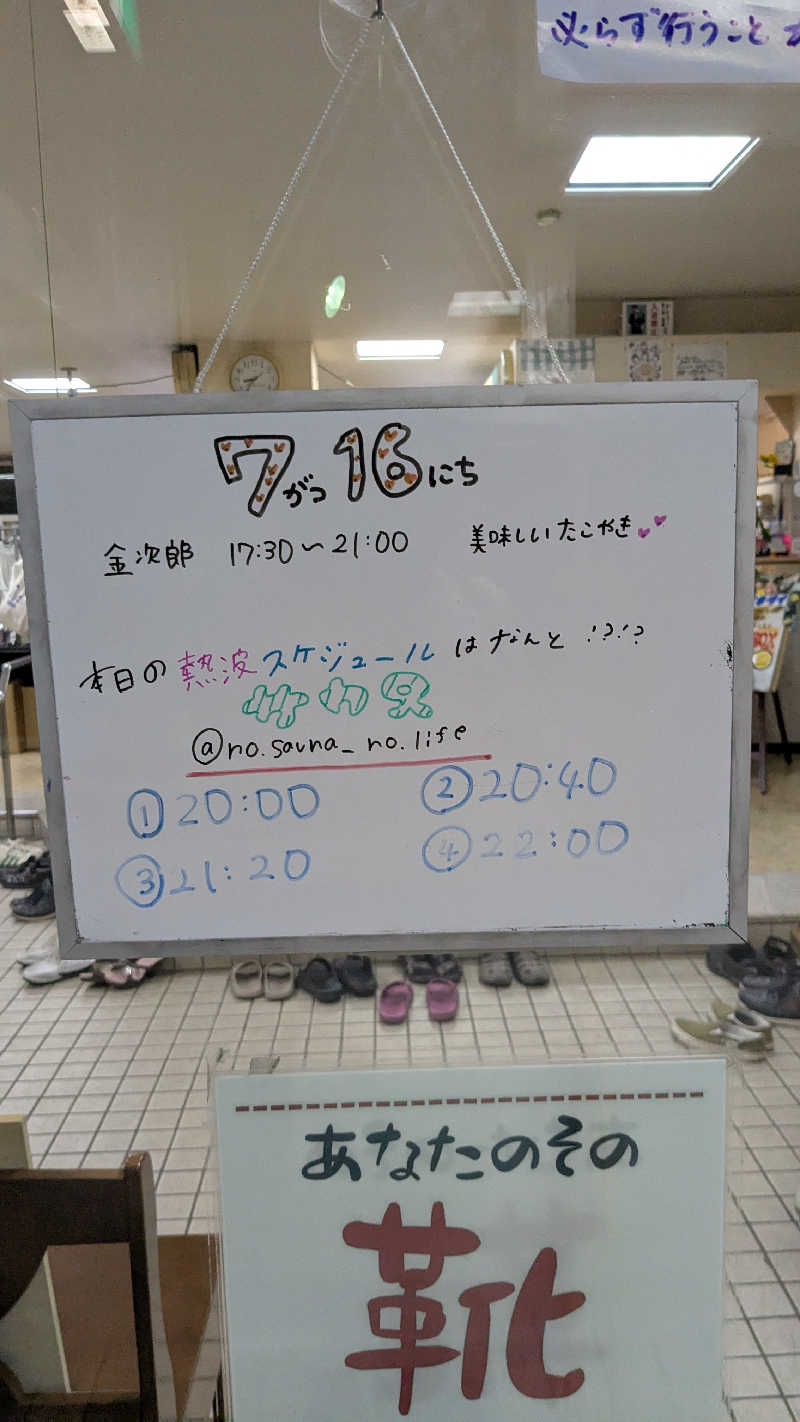 必らず行うこと
7がつ16にち
金次郎 17:30〜21:00 美味しいたこやき
本日の熱波スケジュールはなんと!?!?
@no.sauna_no.life
①20:00 ②20:40
③21:20 ④22:00
あなたのその
靴